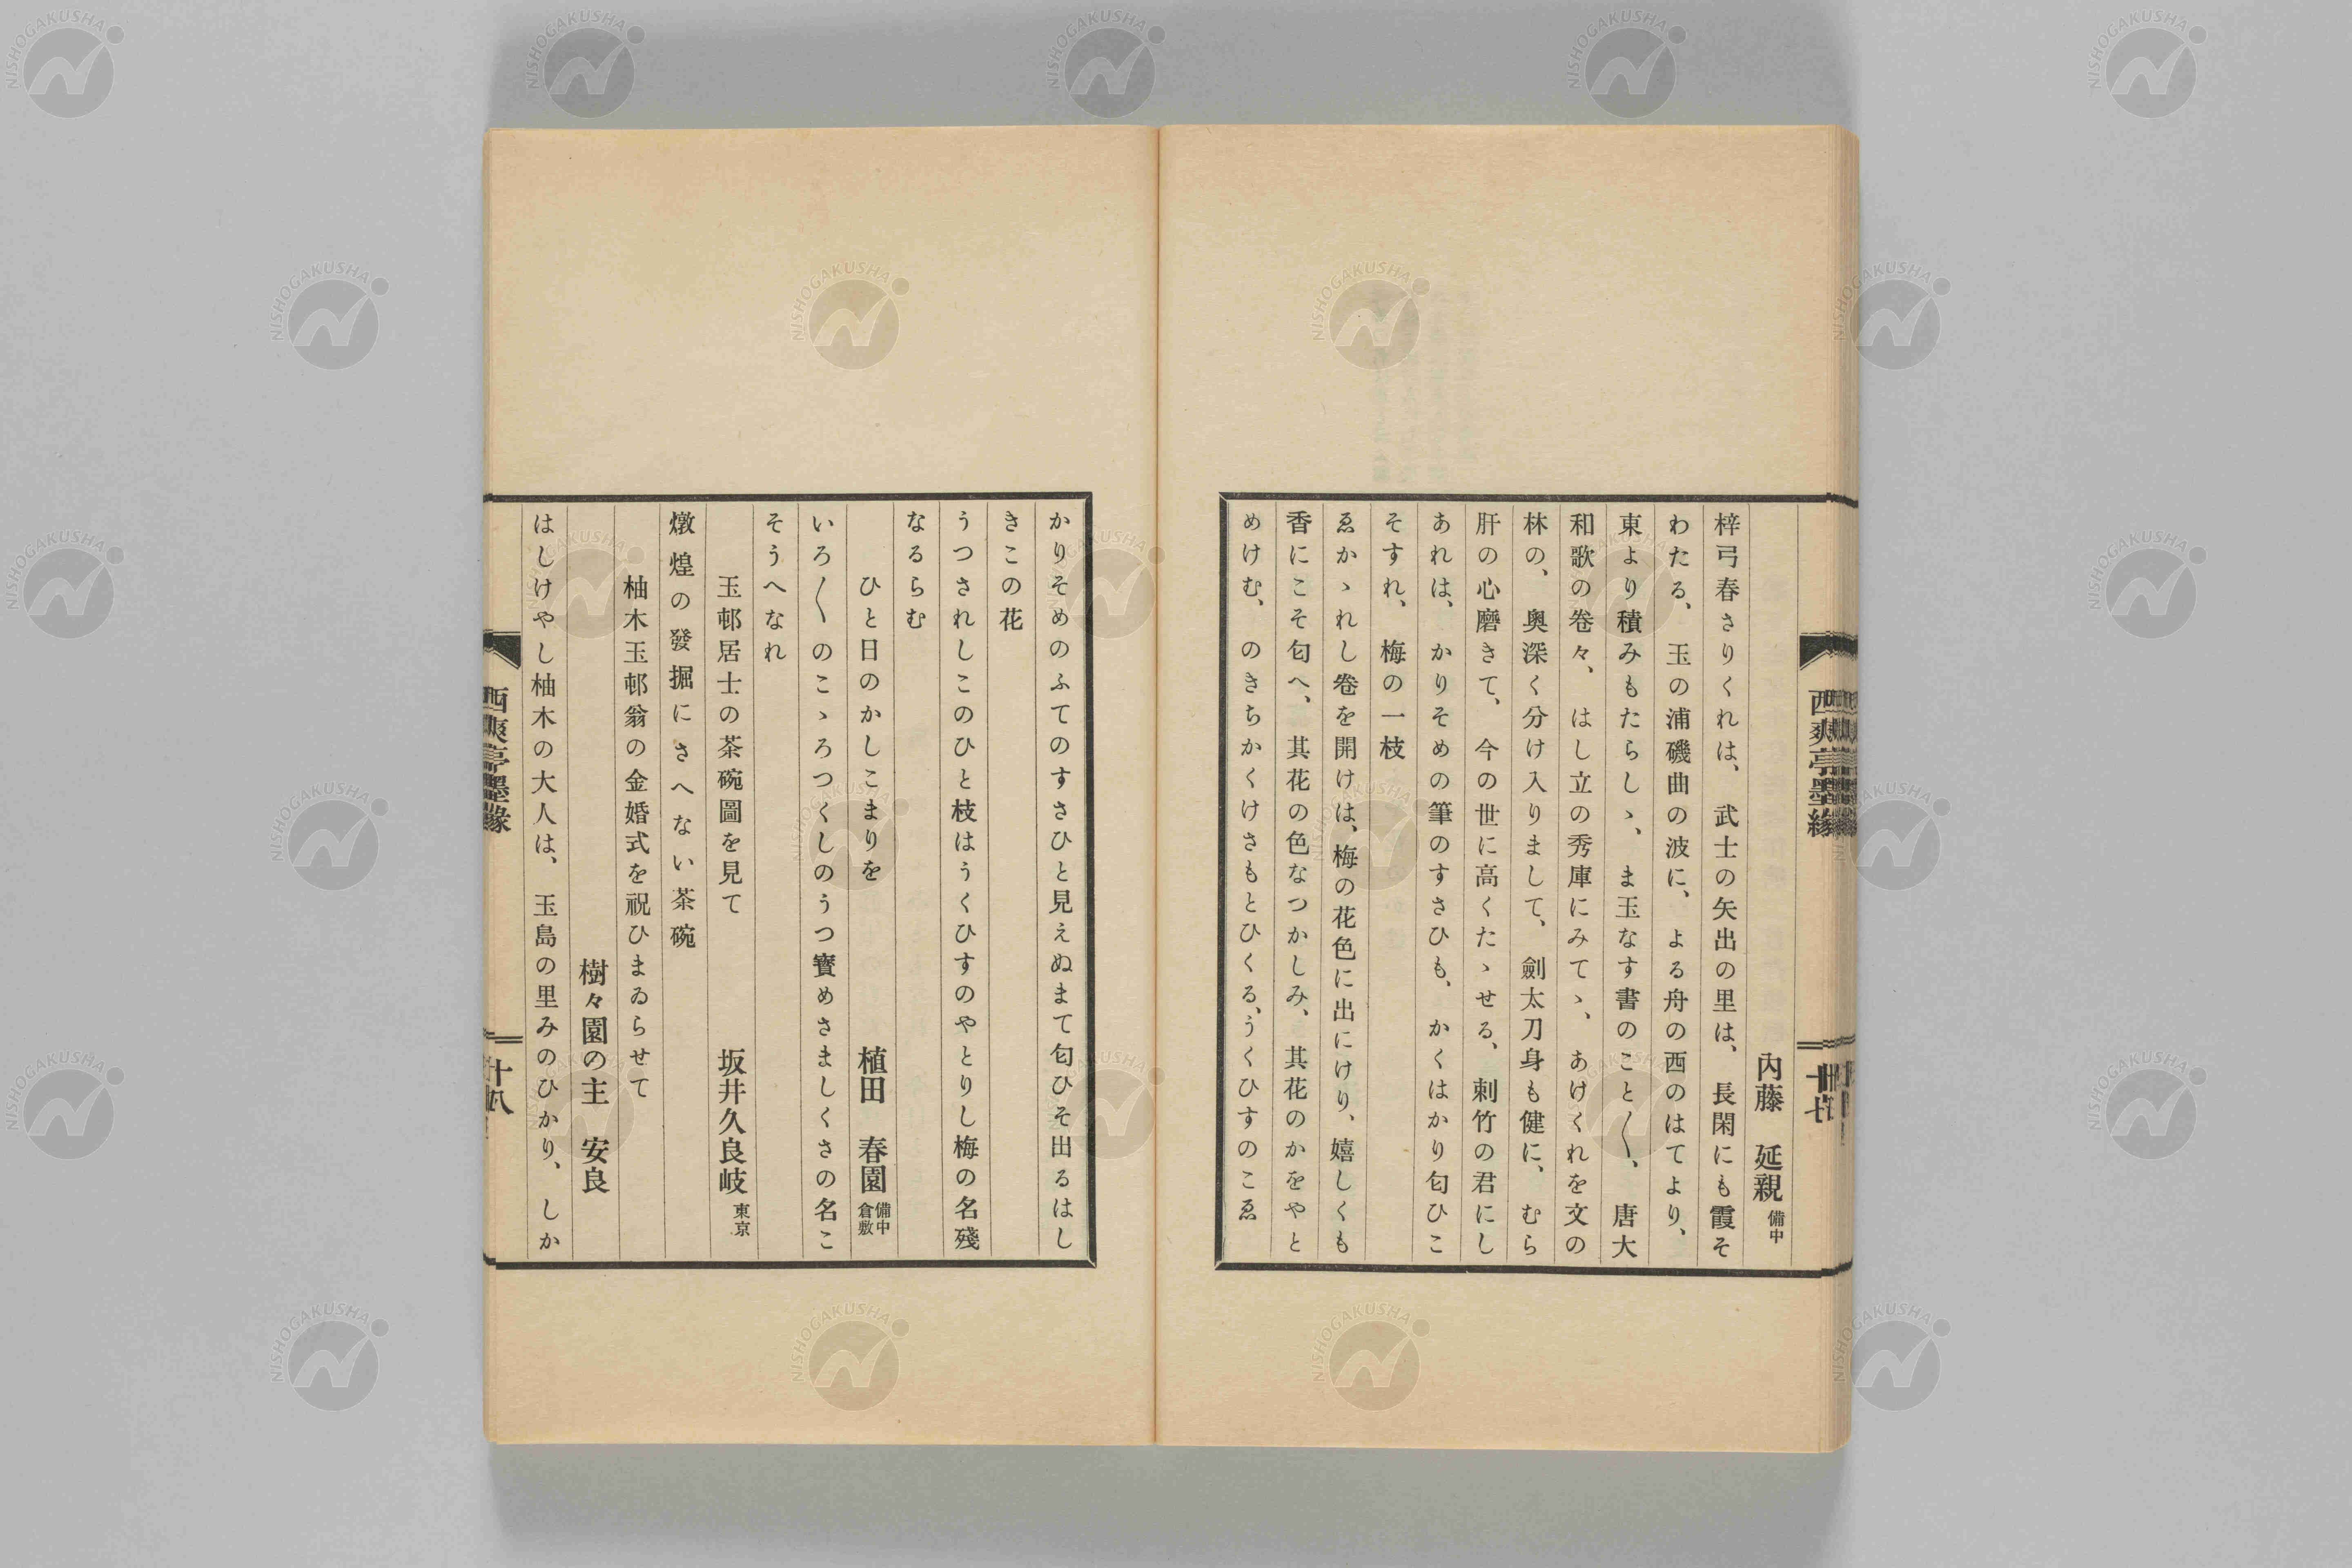 西爽亭墨緣
十七
內藤　延親 備中
梓弓春さりくれは、武士の矢出の里は、長閑にも霞そ
わたる、玉の浦磯曲の波に、よる舟の西のはてより、
東より積みもたらしゝ、ま玉なす書のこと〱、唐大
和歌の卷々、はし立の秀庫にみてゝ、あけくれを文の
林の、奥深く分け入りまして、劍太刀身も健に、むら
肝の心磨きて、今の世に高くたゝせる、刺竹の君にし
あれは、かりそめの筆のすさひも、かくはかり匂ひこ
そすれ、梅の一枝
ゑかゝれし卷を開けは、梅の花色に出にけり、嬉しくも
香にこそ匂へ、其花の色なつかしみ、其花のかをやと
めけむ、のきちかくけさもとひくる、うくひすのこゑ
かりそめのふてのすさひと見えぬまて匂ひそ出るはし
きこの花
うつされしこのひと枝はうくひすのやとりし梅の名殘
なるらむ
ひと日のかしこまりを　植田　春園 備中倉敷
いろ〱のこゝろつくしのうつ寶めさましくさの名こ
そうへなれ
玉邨居士の茶碗圖を見て　坂井久良岐 東京
燉煌の發掘にさへない茶碗
柚木玉邨翁の金婚式を祝ひまゐらせて
樹々園の主　安良
はしけやし柚木の大人は、玉島の里みのひかり、しか
西爽亭墨緣
十八
NISHOGAKUSHA